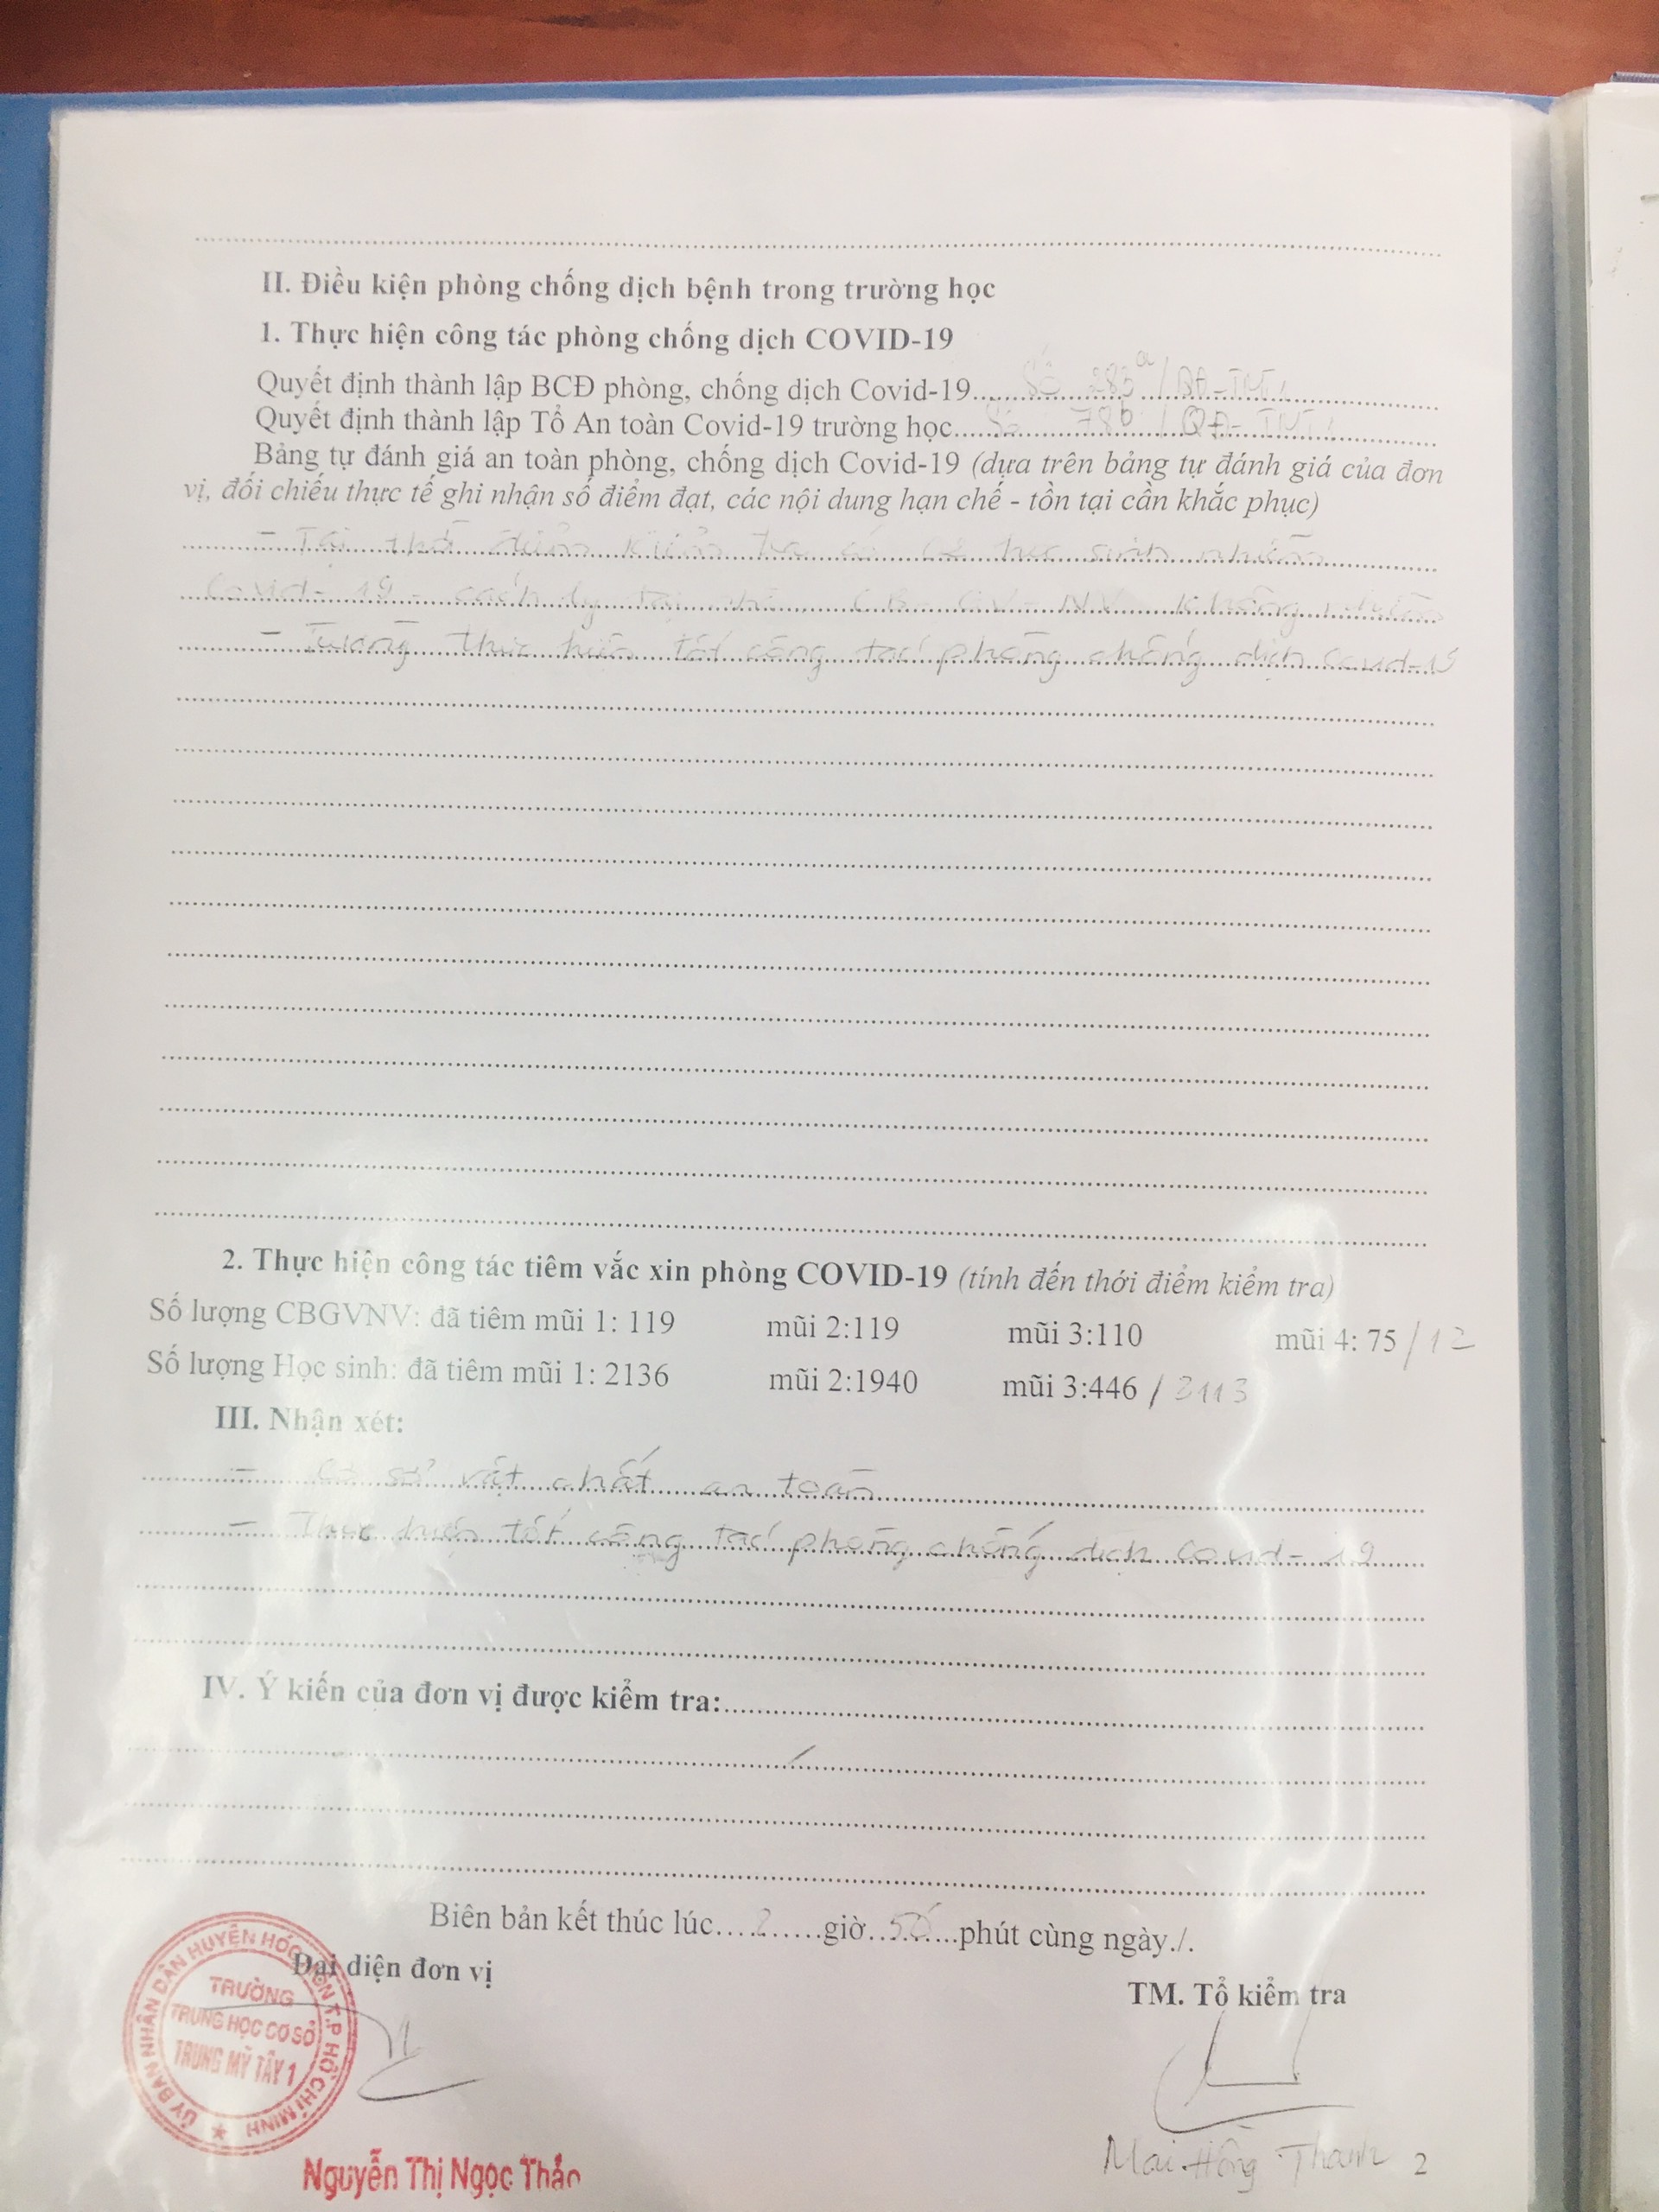 II. Điều kiện phòng chống dịch bệnh trong trường học
1. Thực hiện công tác phòng chống dịch COVID-19
Quyết định thành lập BCĐ phòng, chống dịch Covid-19....Số 283a/QĐ-TMT1
Quyết định thành lập Tổ An toàn Covid-19 trường học....Số 78b/QĐ-TMT1
Bảng tự đánh giá an toàn phòng, chống dịch Covid-19 (dựa trên bảng tự đánh giá của đơn
vị, đối chiếu thực tế ghi nhận số điểm đạt, các nội dung hạn chế - tồn tại cần khắc phục)
- Tại thời điểm kiểm tra có học sinh nhiễm
Covid-19 - cách ly tại nhà, CB-GV-NV không nhiễm
- Trường thực hiện tốt công tác phòng chống dịch Covid-19
2. Thực hiện công tác tiêm vắc xin phòng COVID-19 (tính đến thới điểm kiểm tra)
Số lượng CBGVNV: đã tiêm mũi 1: 119 mũi 2:119 mũi 3:110 mũi 4: 75 / 12
Số lượng Học sinh: đã tiêm mũi 1: 2136 mũi 2:1940 mũi 3:446 /
III. Nhận xét:
- Cơ sở vật chất an toàn
- Thực hiện tốt công tác phòng chống dịch Covid-19
IV. Ý kiến của đơn vị được kiểm tra:
Biên bản kết thúc lúc....2....giờ..50..phút cùng ngày./.
Đại diện đơn vị
TM. Tổ kiểm tra
ỦY BAN NHÂN DÂN HUYỆN HÓC MÔN T.P HỒ CHÍ MINH
TRƯỜNG
TRUNG HỌC CƠ SỞ
TRUNG MỸ TÂY 1
Nguyễn Thị Ngọc Thảo
Mai Hồng Thanh
2